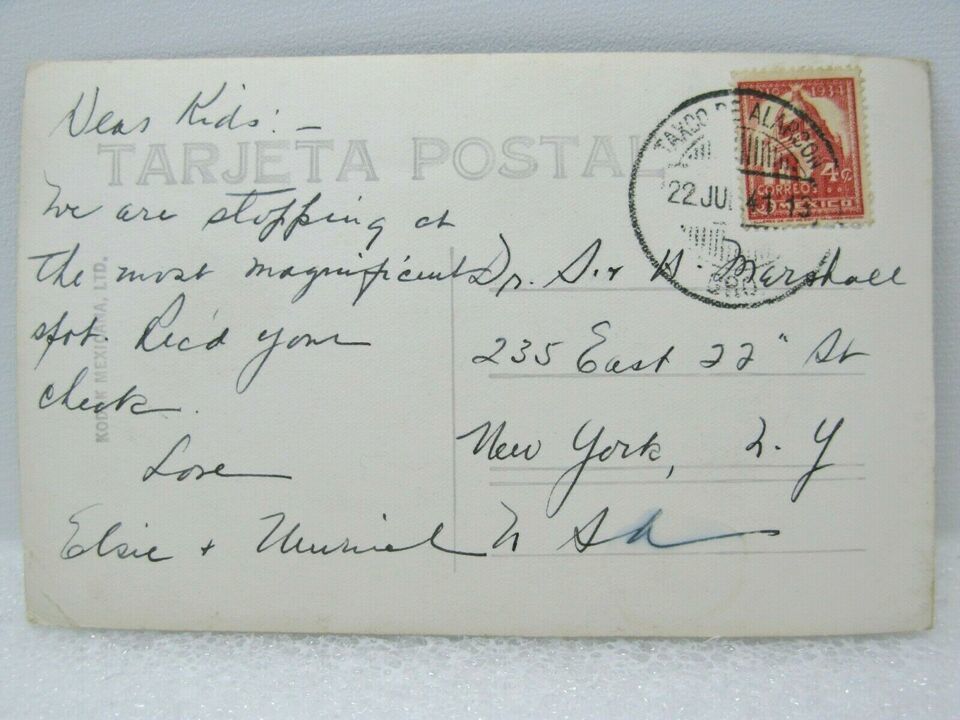 Dear Kids:—
TARJETA POSTAL
We are stopping at
the most magnificent
spot Rec'd your
check.
Love
Elsie + Muriel
KODAK MEXICANA, LTD.
1934
4¢
CORREOS
MEXICO
TAXCO DE ALARCON
22 JUL 41 13
GRO
Dr. S. + H. Marshall
235 East 22" St
New York, N. Y
U S A